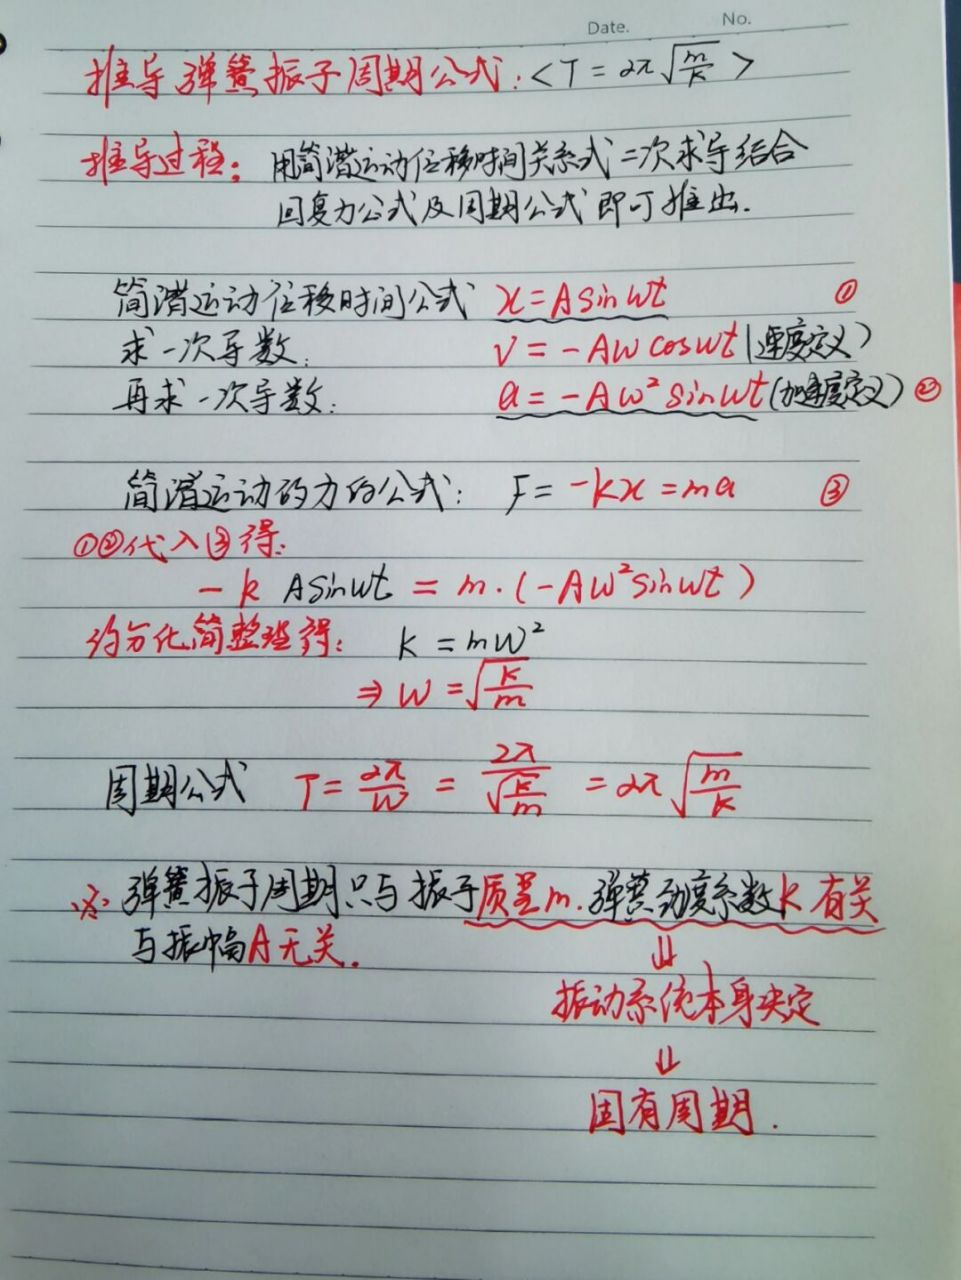 Date. No.
推导弹簧振子周期公式:<T=2π√(m/k)>
推导过程: 用简谐运动位移时间关系式二次求导结合
回复力公式及周期公式即可推出.
简谐运动位移时间公式 x=Asinwt ①
求一次导数: v=-Aw coswt(速度定义)
再求一次导数: a=-Aw²sinwt(加速度定义) ②
简谐运动的力的公式: F=-kx=ma ③
①②代入③得:
-k Asinwt = m·(-Aw²sinwt)
约分化简整理得: k=mw²
⇒ w=√(k/m)
周期公式 T=2π/w = 2π/√(k/m) = 2π√(m/k)
※ 弹簧振子周期只与振子质量m.弹簧劲度系数k有关
与振幅A无关.
⇓
振动系统本身决定
⇓
固有周期.